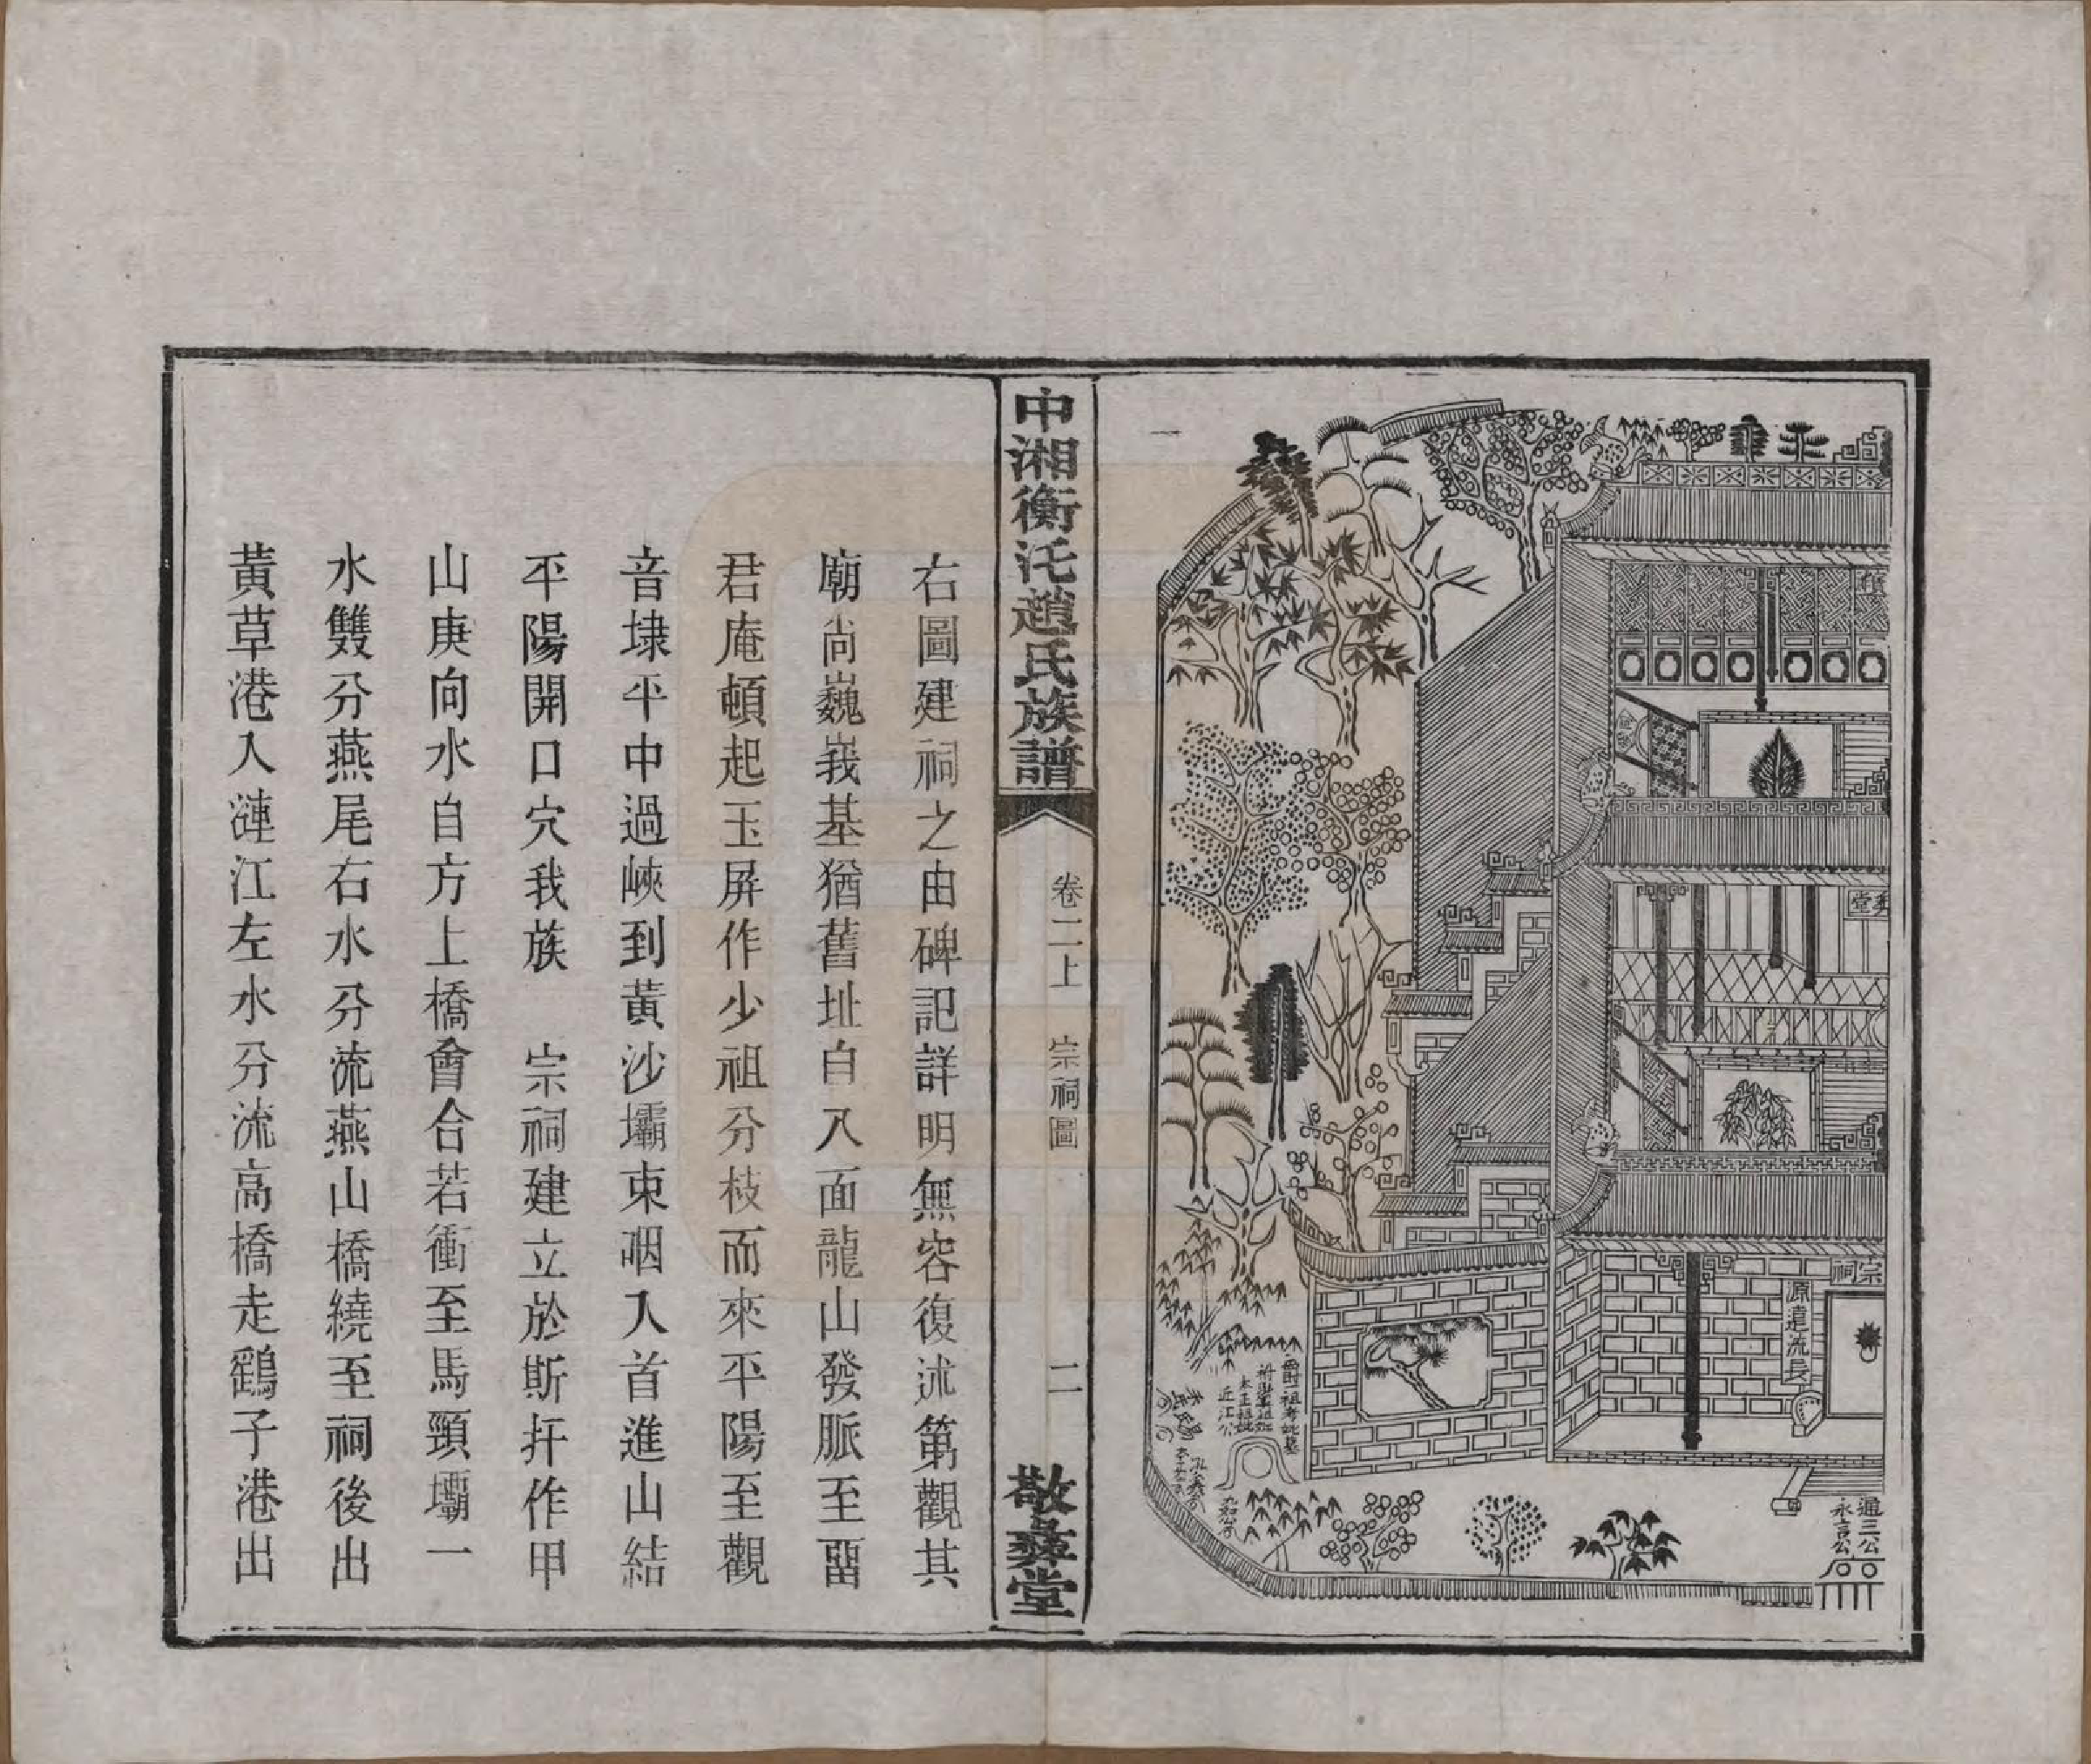 宗祠
源遠流長
通三公
永言公
爵一祖考妣墓
太正祖妣
近江公
中湘衡汑趙氏族譜
卷二上
宗祠圖
二
敬彝堂
右圖建祠之由碑記詳明無容復述第觀其
廟尚巍峩基猶舊址自入面龍山發脈至畱
君庵頓起玉屏作少祖分枝而來平陽至觀
音埭平中過峽到黃沙壩束咽入首進山結
平陽開口穴我族 宗祠建立於斯扞作甲
山庚向水自方上橋會合若衝至馬頸壩一
水雙分燕尾右水分流燕山橋繞至祠後出
黃草港入漣江左水分流高橋走鶴子港出